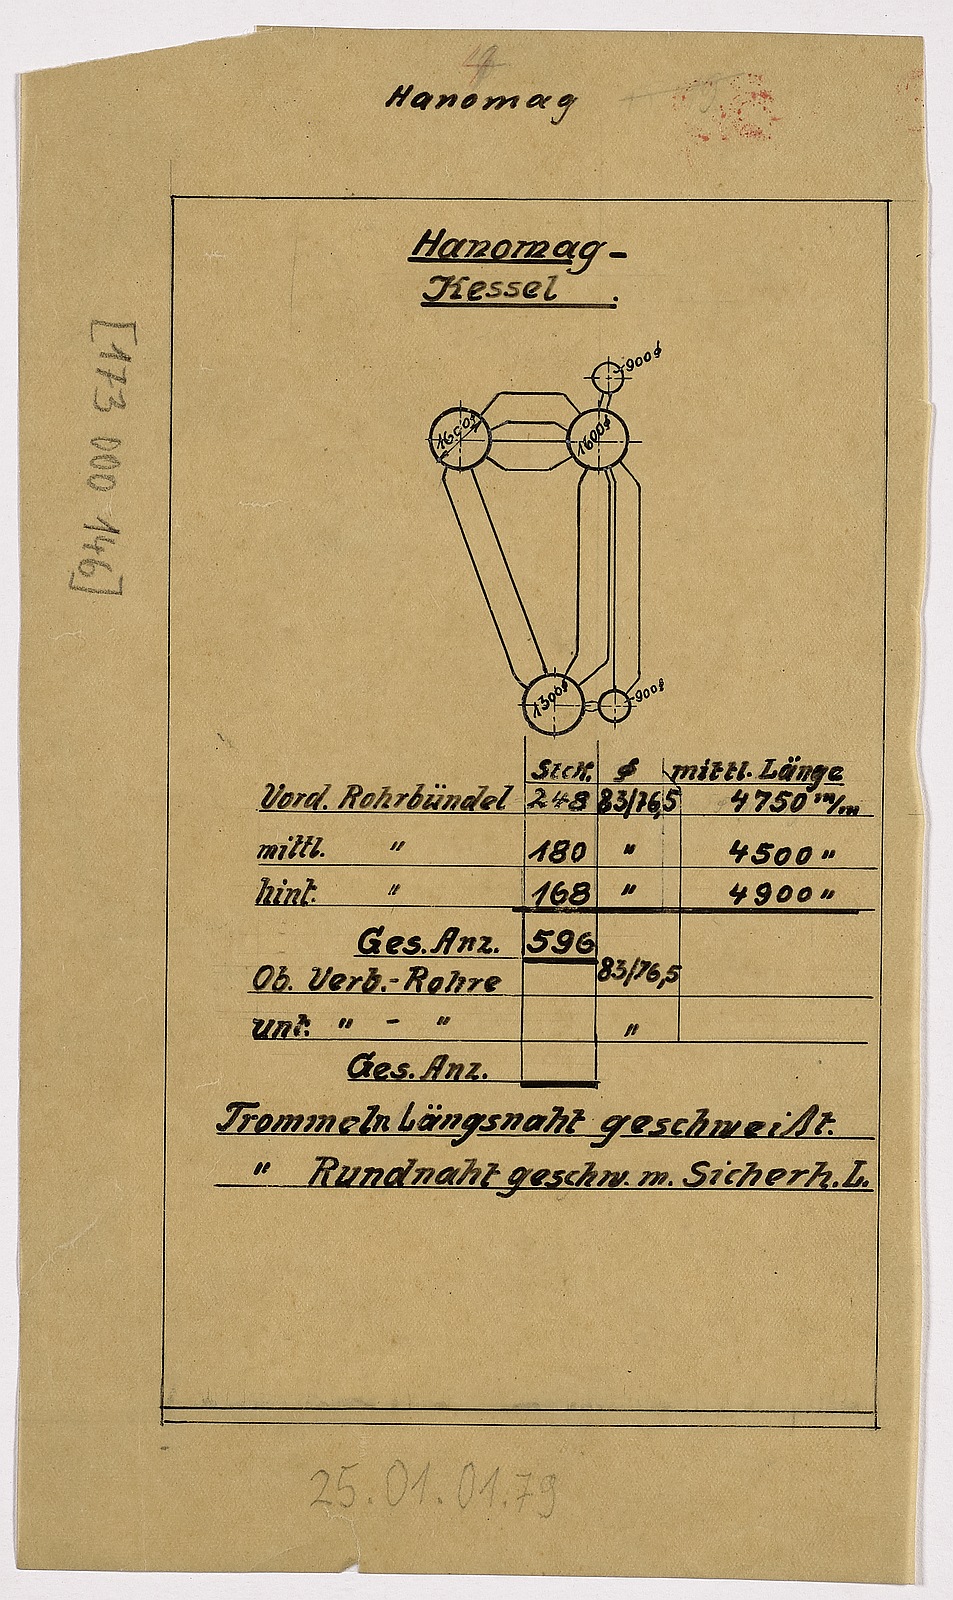 Hanomag
Hanomag-
Kessel.
900ø
1600ø
1600ø
1300ø
900ø
[173 000 146]
Stck. ø mittl. Länge
Vord. Rohrbündel 248 83/76,5 4750 m/m
mittl. " 180 " 4500 "
hint. " 168 " 4900 "
Ges. Anz. 596
Ob. Verb.-Rohre 83/76,5
unt. " - " "
Ges. Anz.
Trommeln Längsnaht geschweißt.
" Rundnaht geschw. m. Sicherh. L.
25.01.01.79